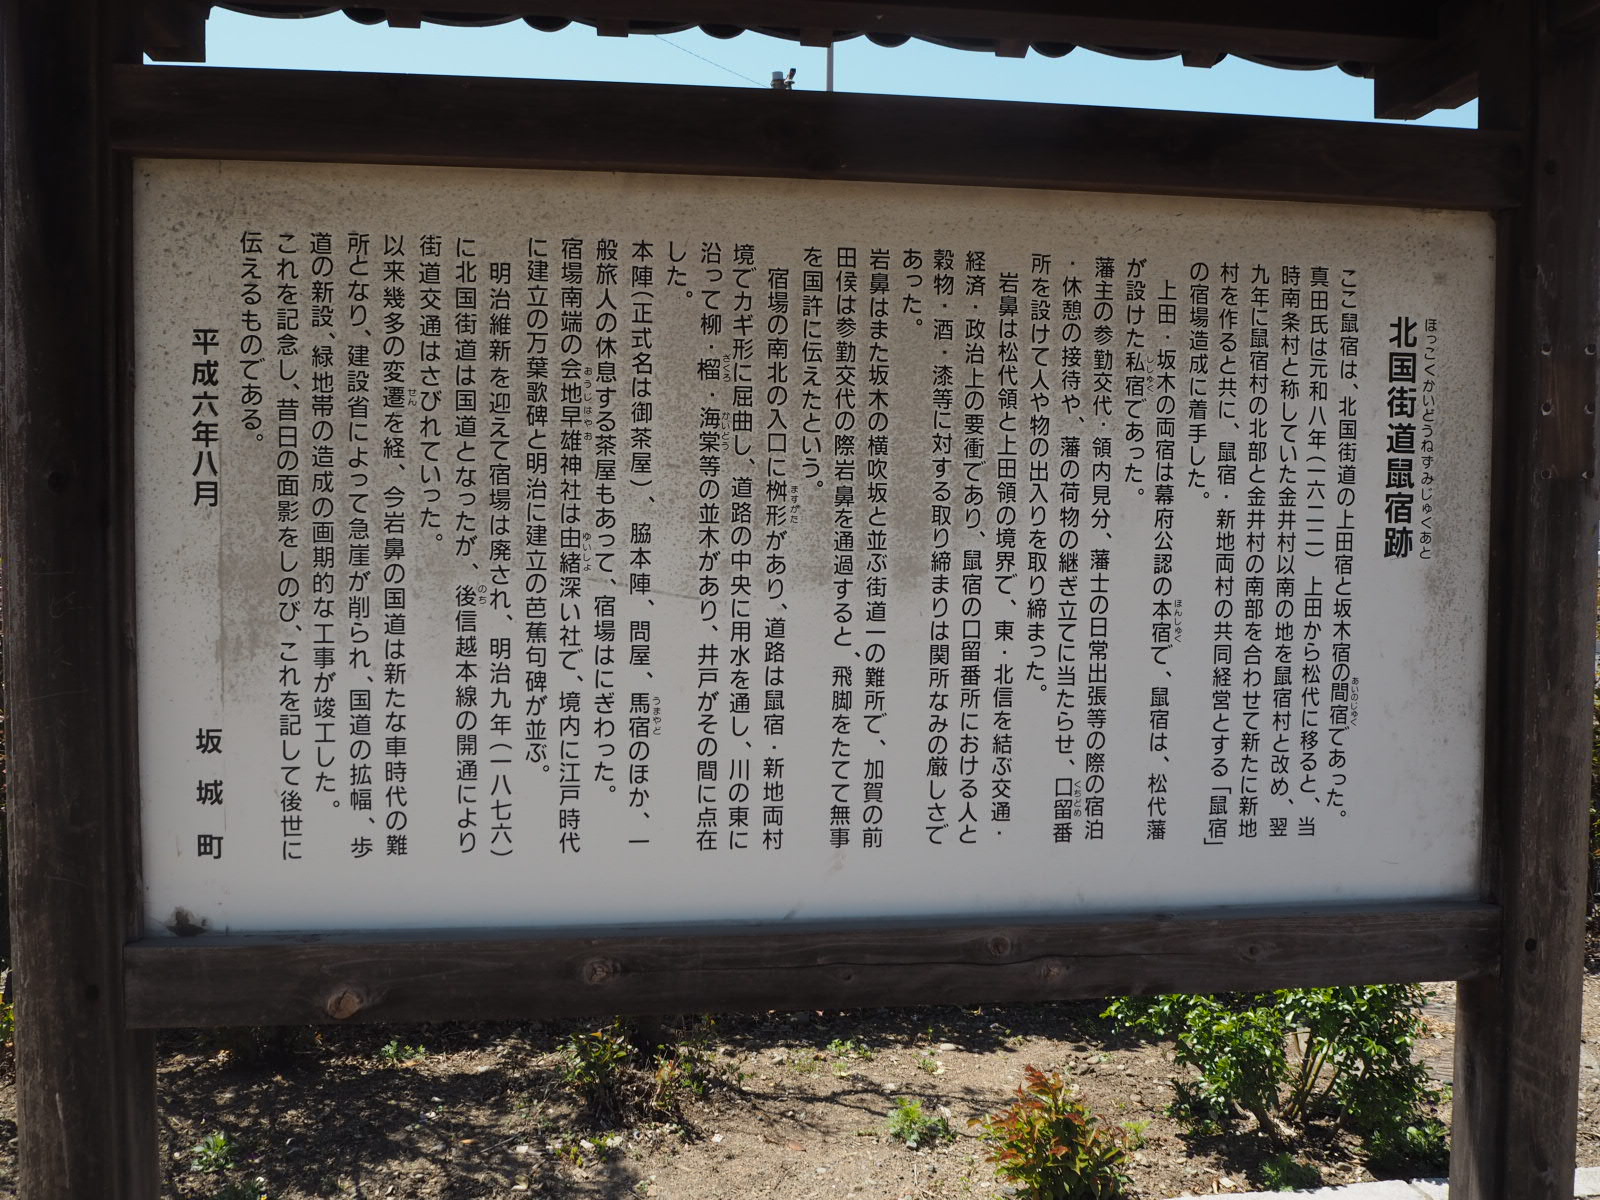 北国街道鼠宿跡
ほっこくかいどうねずみじゅくあと
ここ鼠宿は、北国街道の上田宿と坂木宿の間宿であった。
あいのじゅく
真田氏は元和八年(一六二二)上田から松代に移ると、当
時南条村と称していた金井村以南の地を鼠宿村と改め、翌
九年に鼠宿村の北部と金井村の南部を合わせて新たに新地
村を作ると共に、鼠宿・新地両村の共同経営とする「鼠宿」
の宿場造成に着手した。
上田・坂木の両宿は幕府公認の本宿で、鼠宿は、松代藩
ほんしゅく
が設けた私宿であった。
ししゅく
藩主の参勤交代・領内見分、藩士の日常出張等の際の宿泊
・休憩の接待や、藩の荷物の継ぎ立てに当たらせ、口留番
くちどめ
所を設けて人や物の出入りを取り締まった。
岩鼻は松代領と上田領の境界で、東・北信を結ぶ交通・
経済・政治上の要衝であり、鼠宿の口留番所における人と
穀物・酒・漆等に対する取り締まりは関所なみの厳しさで
あった。
岩鼻はまた坂木の横吹坂と並ぶ街道一の難所で、加賀の前
田侯は参勤交代の際岩鼻を通過すると、飛脚をたてて無事
を国許に伝えたという。
宿場の南北の入口に桝形があり、道路は鼠宿・新地両村
ますがた
境でカギ形に屈曲し、道路の中央に用水を通し、川の東に
沿って柳・榴・海棠等の並木があり、井戸がその間に点在
ざくろ かいどう
した。
本陣(正式名は御茶屋)、脇本陣、問屋、馬宿のほか、一
うまやど
般旅人の休息する茶屋もあって、宿場はにぎわった。
宿場南端の会地早雄神社は由緒深い社で、境内に江戸時代
おうじはやお ゆいしょ
に建立の万葉歌碑と明治に建立の芭蕉句碑が並ぶ。
明治維新を迎えて宿場は廃され、明治九年(一八七六)
に北国街道は国道となったが、後信越本線の開通により
のち
街道交通はさびれていった。
以来幾多の変遷を経、今岩鼻の国道は新たな車時代の難
せん
所となり、建設省によって急崖が削られ、国道の拡幅、歩
道の新設、緑地帯の造成の画期的な工事が竣工した。
これを記念し、昔日の面影をしのび、これを記して後世に
伝えるものである。
平成六年八月
坂城町